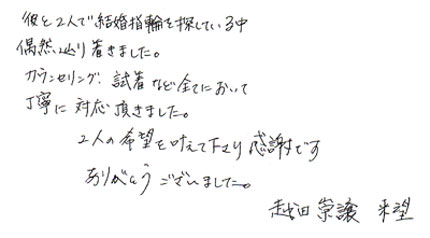 彼と2人で結婚指輪を探している中
偶然辿り着きました。
カウンセリング、試着など全てにおいて
丁寧に対応頂きました。
2人の希望を叶えて下さり感謝です
ありがとうございました。
越田崇譲 来望